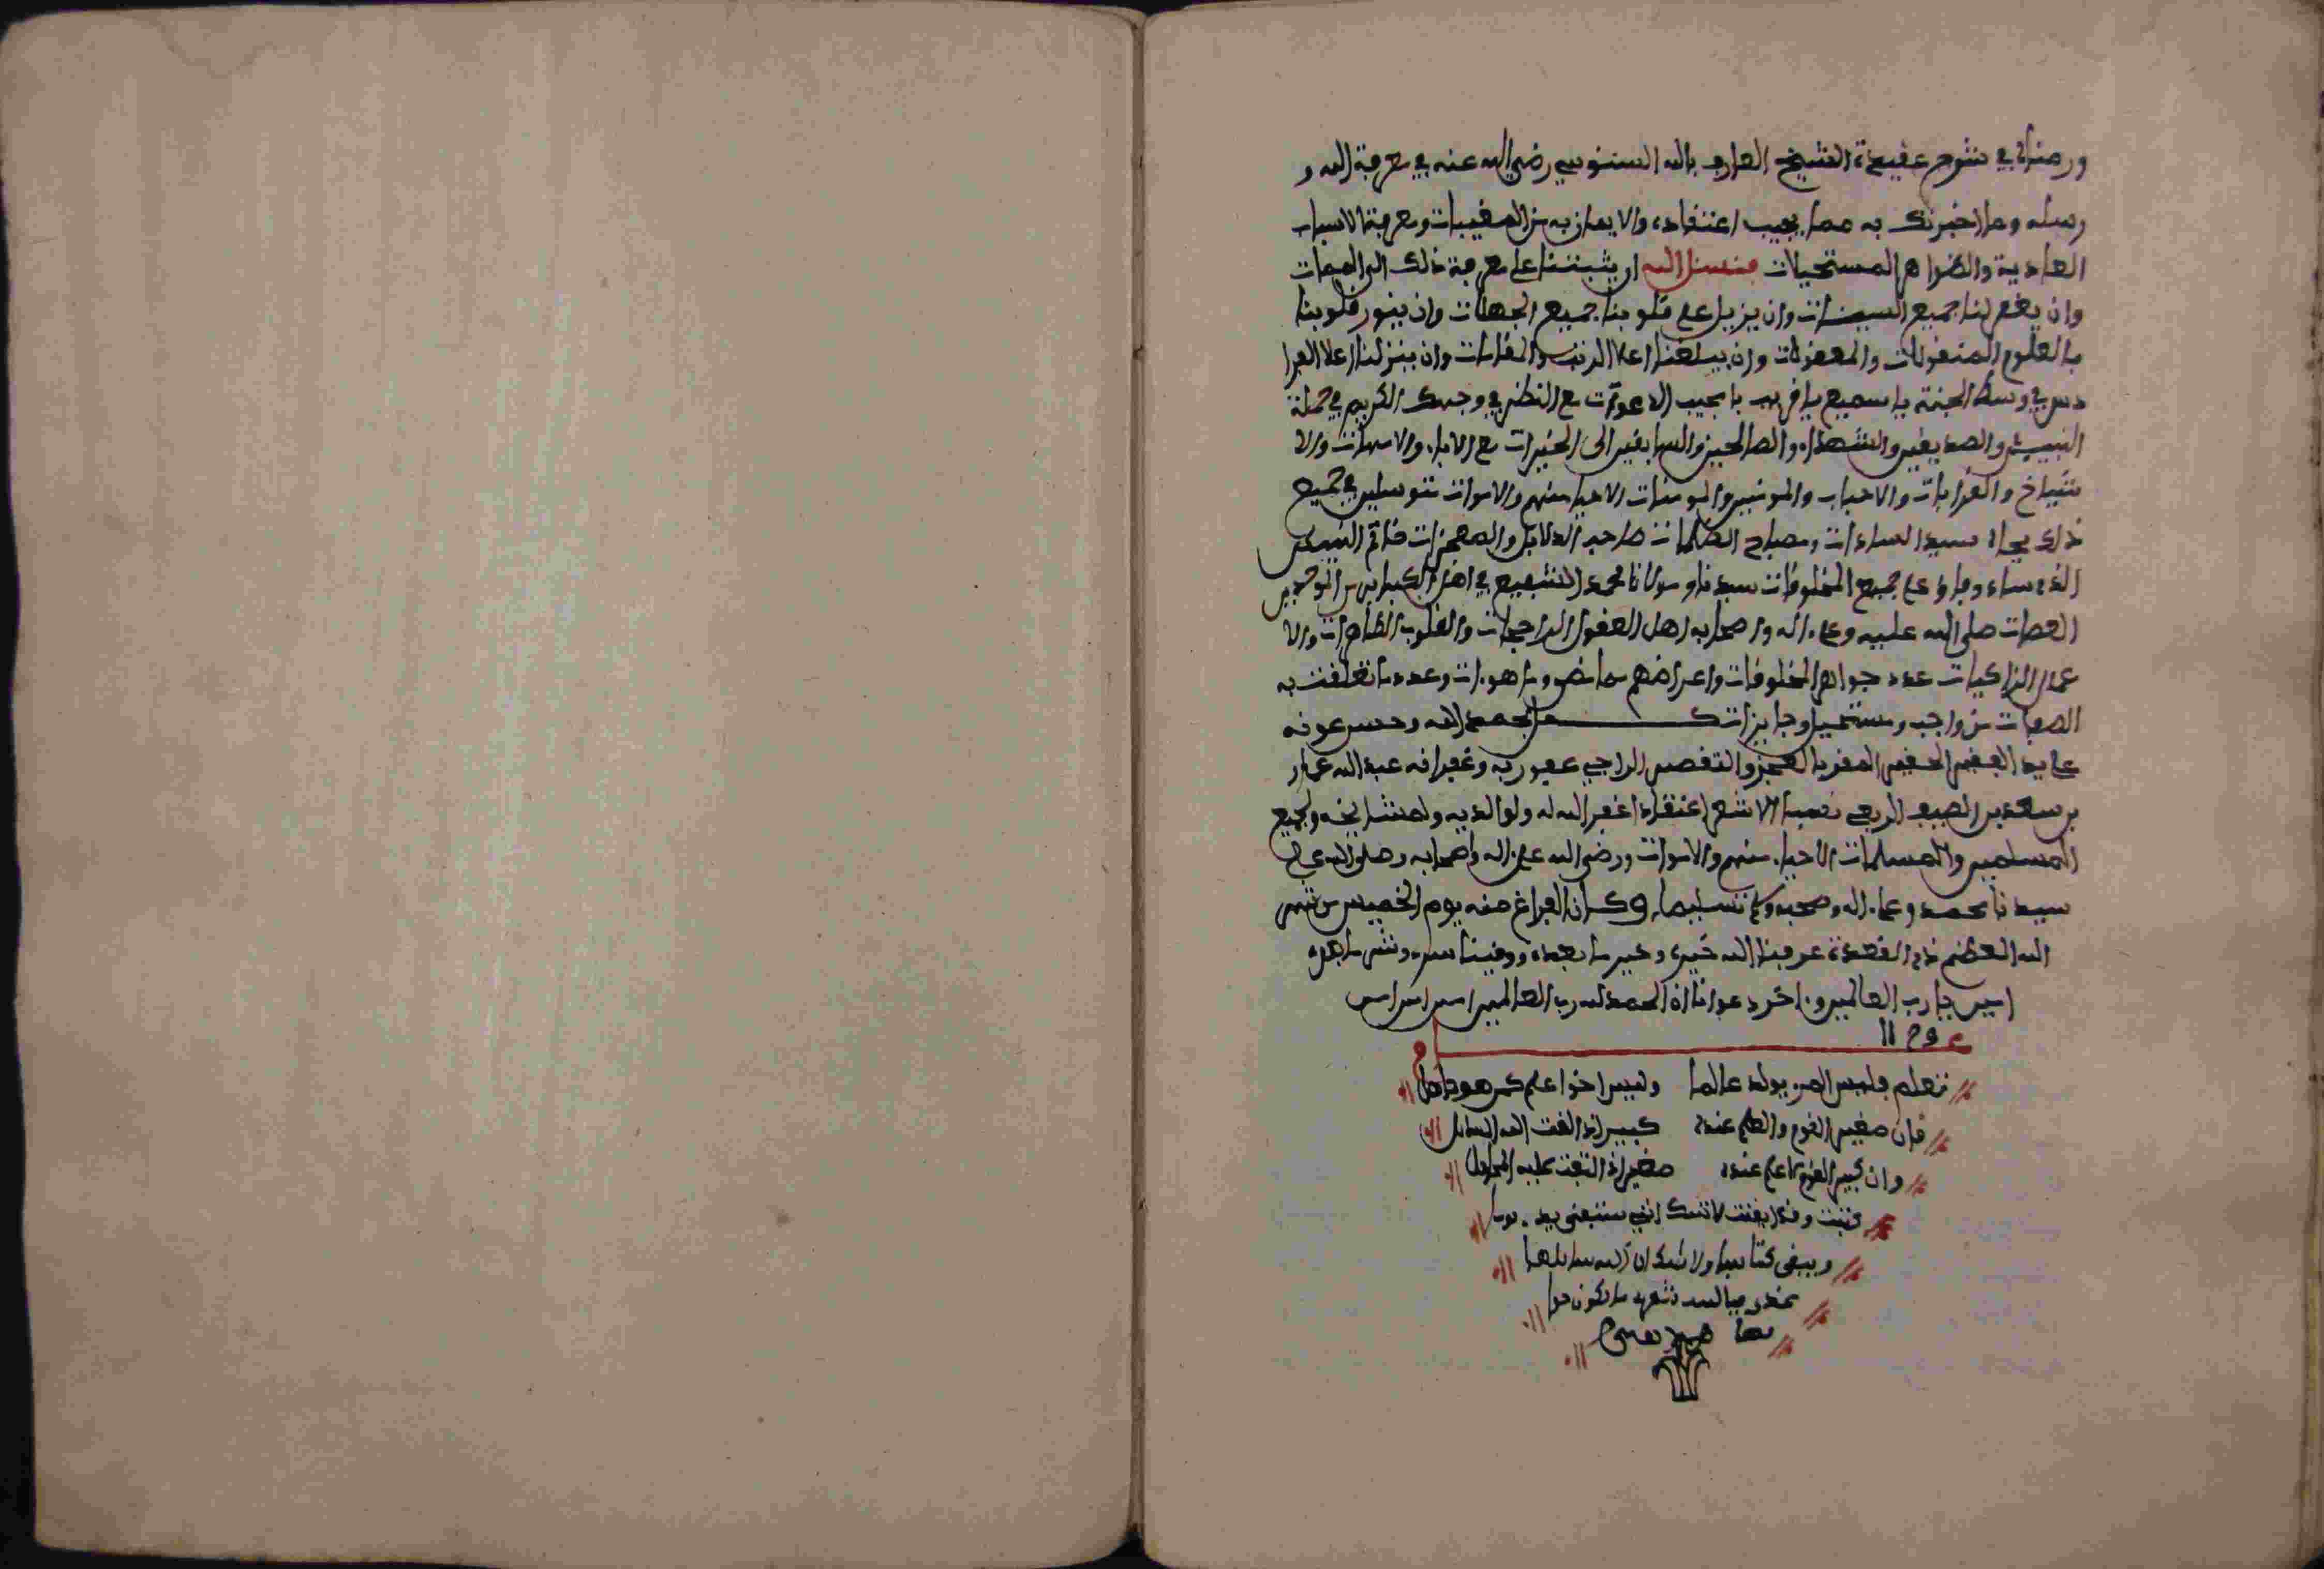 في شرح عقيدة الشيخ العارف بالله السنوسي رضي الله عنه في معرفة الله و
رسله وما اخبرتك به مما يجب اعتقاده والايمان به من المغيبات ومعرفة الاسباب
العادية والظواهر المستحيلات فنسئل الله ان يثبتنا على معرفة ذلك الى الممات
وان يغفر لنا جميع السيئات وان يزيل على قلوبنا جميع الجهلات وان ينور قلوبنا
بالعلوم المنقولات والمعقولات وان يبلغنا اعلا الرتب والمقامات وان ينزلنا اعلا الفرا
دس في وسط الجنة يا سميع يا قريب يا مجيب الدعوات مع النظر في وجهك الكريم في جملة
النبيين والصديقين والشهداء والصالحين والسابقين الى الخيرات مع الاباء والامهات والا
شياخ والقرابات والاحباب والمومنين والمومنات الاحياء منهم والاموات متوسلين في جميع
ذلك بجاه سيد السادات ومصباح الظلمات صاحب الدلايل والمعجزات خاتم النبيين
الذي ساد وفاق على جميع المخلوقات سيدنا ومولانا محمد الشفيع في اهل الكباير من الموحدين
العصات صلى الله عليه وعلى اله واصحابه اهل العقول الراجحات والقلوب الطاهرات والا
عمال الزاكيات عدد جواهر المخلوقات واعراضهم مما مضى وما هو ات وعدد ما تعلقت به
الصفات من واجب ومستحيل وجايزات كمل بحمد الله وحسن عونه
على يد الفقير الحقير المقر بالعجز والتقصير الراجي عفو ربه وغفرانه عبد الله عمار
بن سعد بن الضيف الربعي نسبا الاشعري اعتقادا غفر الله له ولوالديه ولمشايخه ولجميع
المسلمين والمسلمات الاحياء منهم والاموات ورضي الله على اله واصحابه وصلى الله على
سيدنا محمد وعلى اله وصحبه وسلم تسليما وكان الفراغ منه يوم الخميس من شهر
الله العظيم ذي القعدة عرفنا الله خيره وخير ما بعده ووقينا شره وشر ما بعده
امين يا رب العالمين واخر دعوانا ان الحمد لله رب العالمين امين امين امين
تعلم فليس المرء يولد عالما وليس اخوا علم كمن هو جاهل
فان صغير القوم والعلم عنده كبير اذا
وان كبير القوم لا علم عنده صغير اذا التفت عليه المحافل
كتبت وقد ايقنت لا شك انني ستفنى يدي يوما
ويبقى كتابها ولا شك ان الله سايلها